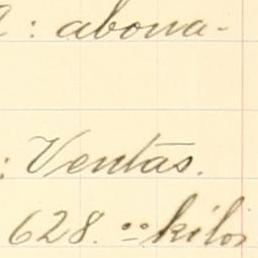 : abona-
: Ventas.
628.ºº kilos